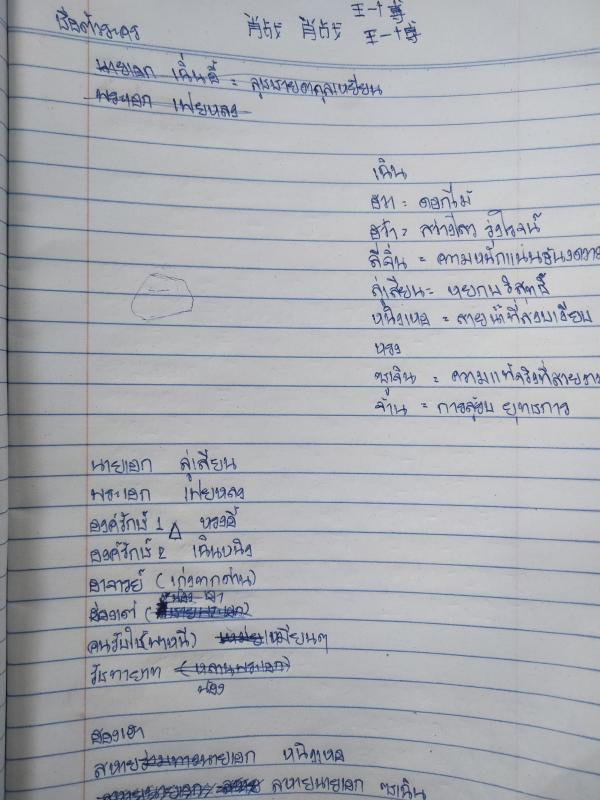 ชื่อตัวละคร
肖战 肖战 王一博
王一博
นายเอก เฉินอี้ =
พระเอก เฟยหลง
เฉิน
ฮวา = ดอกไม้
ฮว๋า = สว่างไสว รุ่งโรจน์
ลี่จิ่น = ความหนักแน่น
ลู่เสียน = หยกบริสุทธิ์
หนิงเหอ = สายน้ำที่สงบเงียบ
หรง
ซูเจิน = ความแท้จริงที่สวยงาม
จ้าน = การสู้รบ ยุทธการ
นายเอก ลู่เสียน
พระเอก เฟยหลง
องค์รักษ์ 1 หรงอี้
องค์รักษ์ 2 เฉินหนิง
อาจารย์ (เก่งทุกด้าน)
ฮ่องเต้
คนรับใช้(พาหนี) เหมียนๆ
รัชทายาท (หลานพระเอก)
น้อง
ฮองเฮา
สหายร่วมทางนายเอก หนิงเหอ
สหายนายเอก ซูเจิน